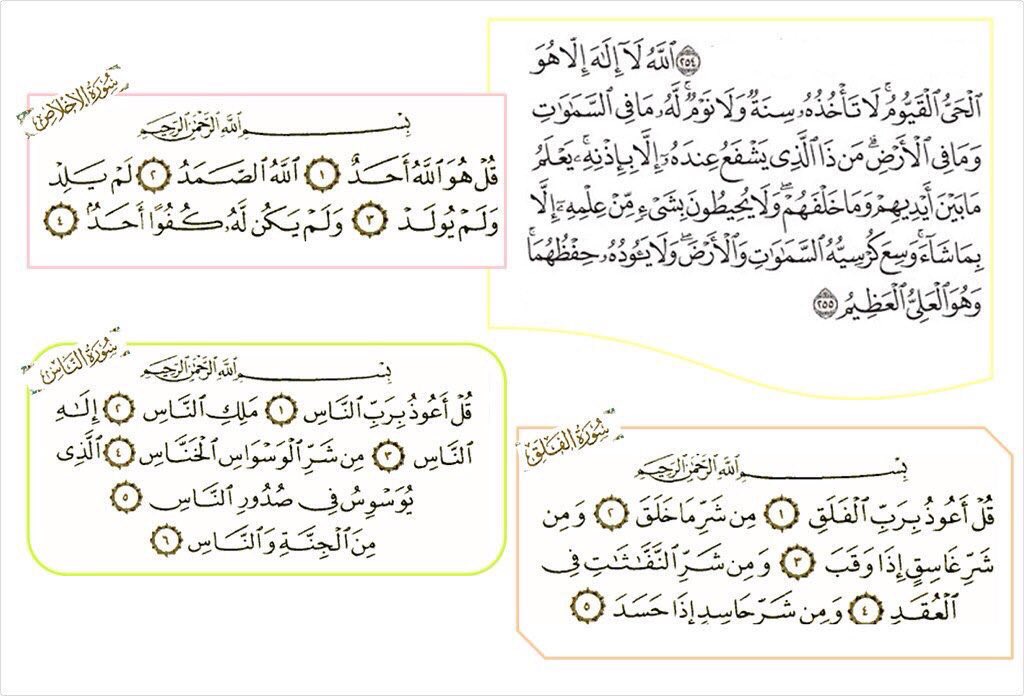 ۝٢٥٤ ٱللَّهُ لَآ إِلَٰهَ إِلَّا هُوَ
ٱلْحَىُّ ٱلْقَيُّومُ ۚ لَا تَأْخُذُهُۥ سِنَةٌ وَلَا نَوْمٌ ۚ لَّهُۥ مَا فِى ٱلسَّمَٰوَٰتِ
وَمَا فِى ٱلْأَرْضِ ۗ مَن ذَا ٱلَّذِى يَشْفَعُ عِندَهُۥٓ إِلَّا بِإِذْنِهِۦ ۚ يَعْلَمُ
مَا بَيْنَ أَيْدِيهِمْ وَمَا خَلْفَهُمْ ۖ وَلَا يُحِيطُونَ بِشَىْءٍ مِّنْ عِلْمِهِۦٓ إِلَّا
بِمَا شَآءَ ۚ وَسِعَ كُرْسِيُّهُ ٱلسَّمَٰوَٰتِ وَٱلْأَرْضَ ۖ وَلَا يَـُٔودُهُۥ حِفْظُهُمَا ۚ
وَهُوَ ٱلْعَلِىُّ ٱلْعَظِيمُ ۝٢٥٥
سُورَةُ الإِخْلَاصِ
بِسْمِ ٱللَّهِ ٱلرَّحْمَٰنِ ٱلرَّحِيمِ
قُلْ هُوَ ٱللَّهُ أَحَدٌ ۝١ ٱللَّهُ ٱلصَّمَدُ ۝٢ لَمْ يَلِدْ
وَلَمْ يُولَدْ ۝٣ وَلَمْ يَكُن لَّهُۥ كُفُوًا أَحَدٌۢ ۝٤
سُورَةُ النَّاسِ
بِسْمِ ٱللَّهِ ٱلرَّحْمَٰنِ ٱلرَّحِيمِ
قُلْ أَعُوذُ بِرَبِّ ٱلنَّاسِ ۝١ مَلِكِ ٱلنَّاسِ ۝٢ إِلَٰهِ
ٱلنَّاسِ ۝٣ مِن شَرِّ ٱلْوَسْوَاسِ ٱلْخَنَّاسِ ۝٤ ٱلَّذِى
يُوَسْوِسُ فِى صُدُورِ ٱلنَّاسِ ۝٥
مِنَ ٱلْجِنَّةِ وَٱلنَّاسِ ۝٦
سُورَةُ الفَلَقِ
بِسْمِ ٱللَّهِ ٱلرَّحْمَٰنِ ٱلرَّحِيمِ
قُلْ أَعُوذُ بِرَبِّ ٱلْفَلَقِ ۝١ مِن شَرِّ مَا خَلَقَ ۝٢ وَمِن
شَرِّ غَاسِقٍ إِذَا وَقَبَ ۝٣ وَمِن شَرِّ ٱلنَّفَّٰثَٰتِ فِى
ٱلْعُقَدِ ۝٤ وَمِن شَرِّ حَاسِدٍ إِذَا حَسَدَ ۝٥